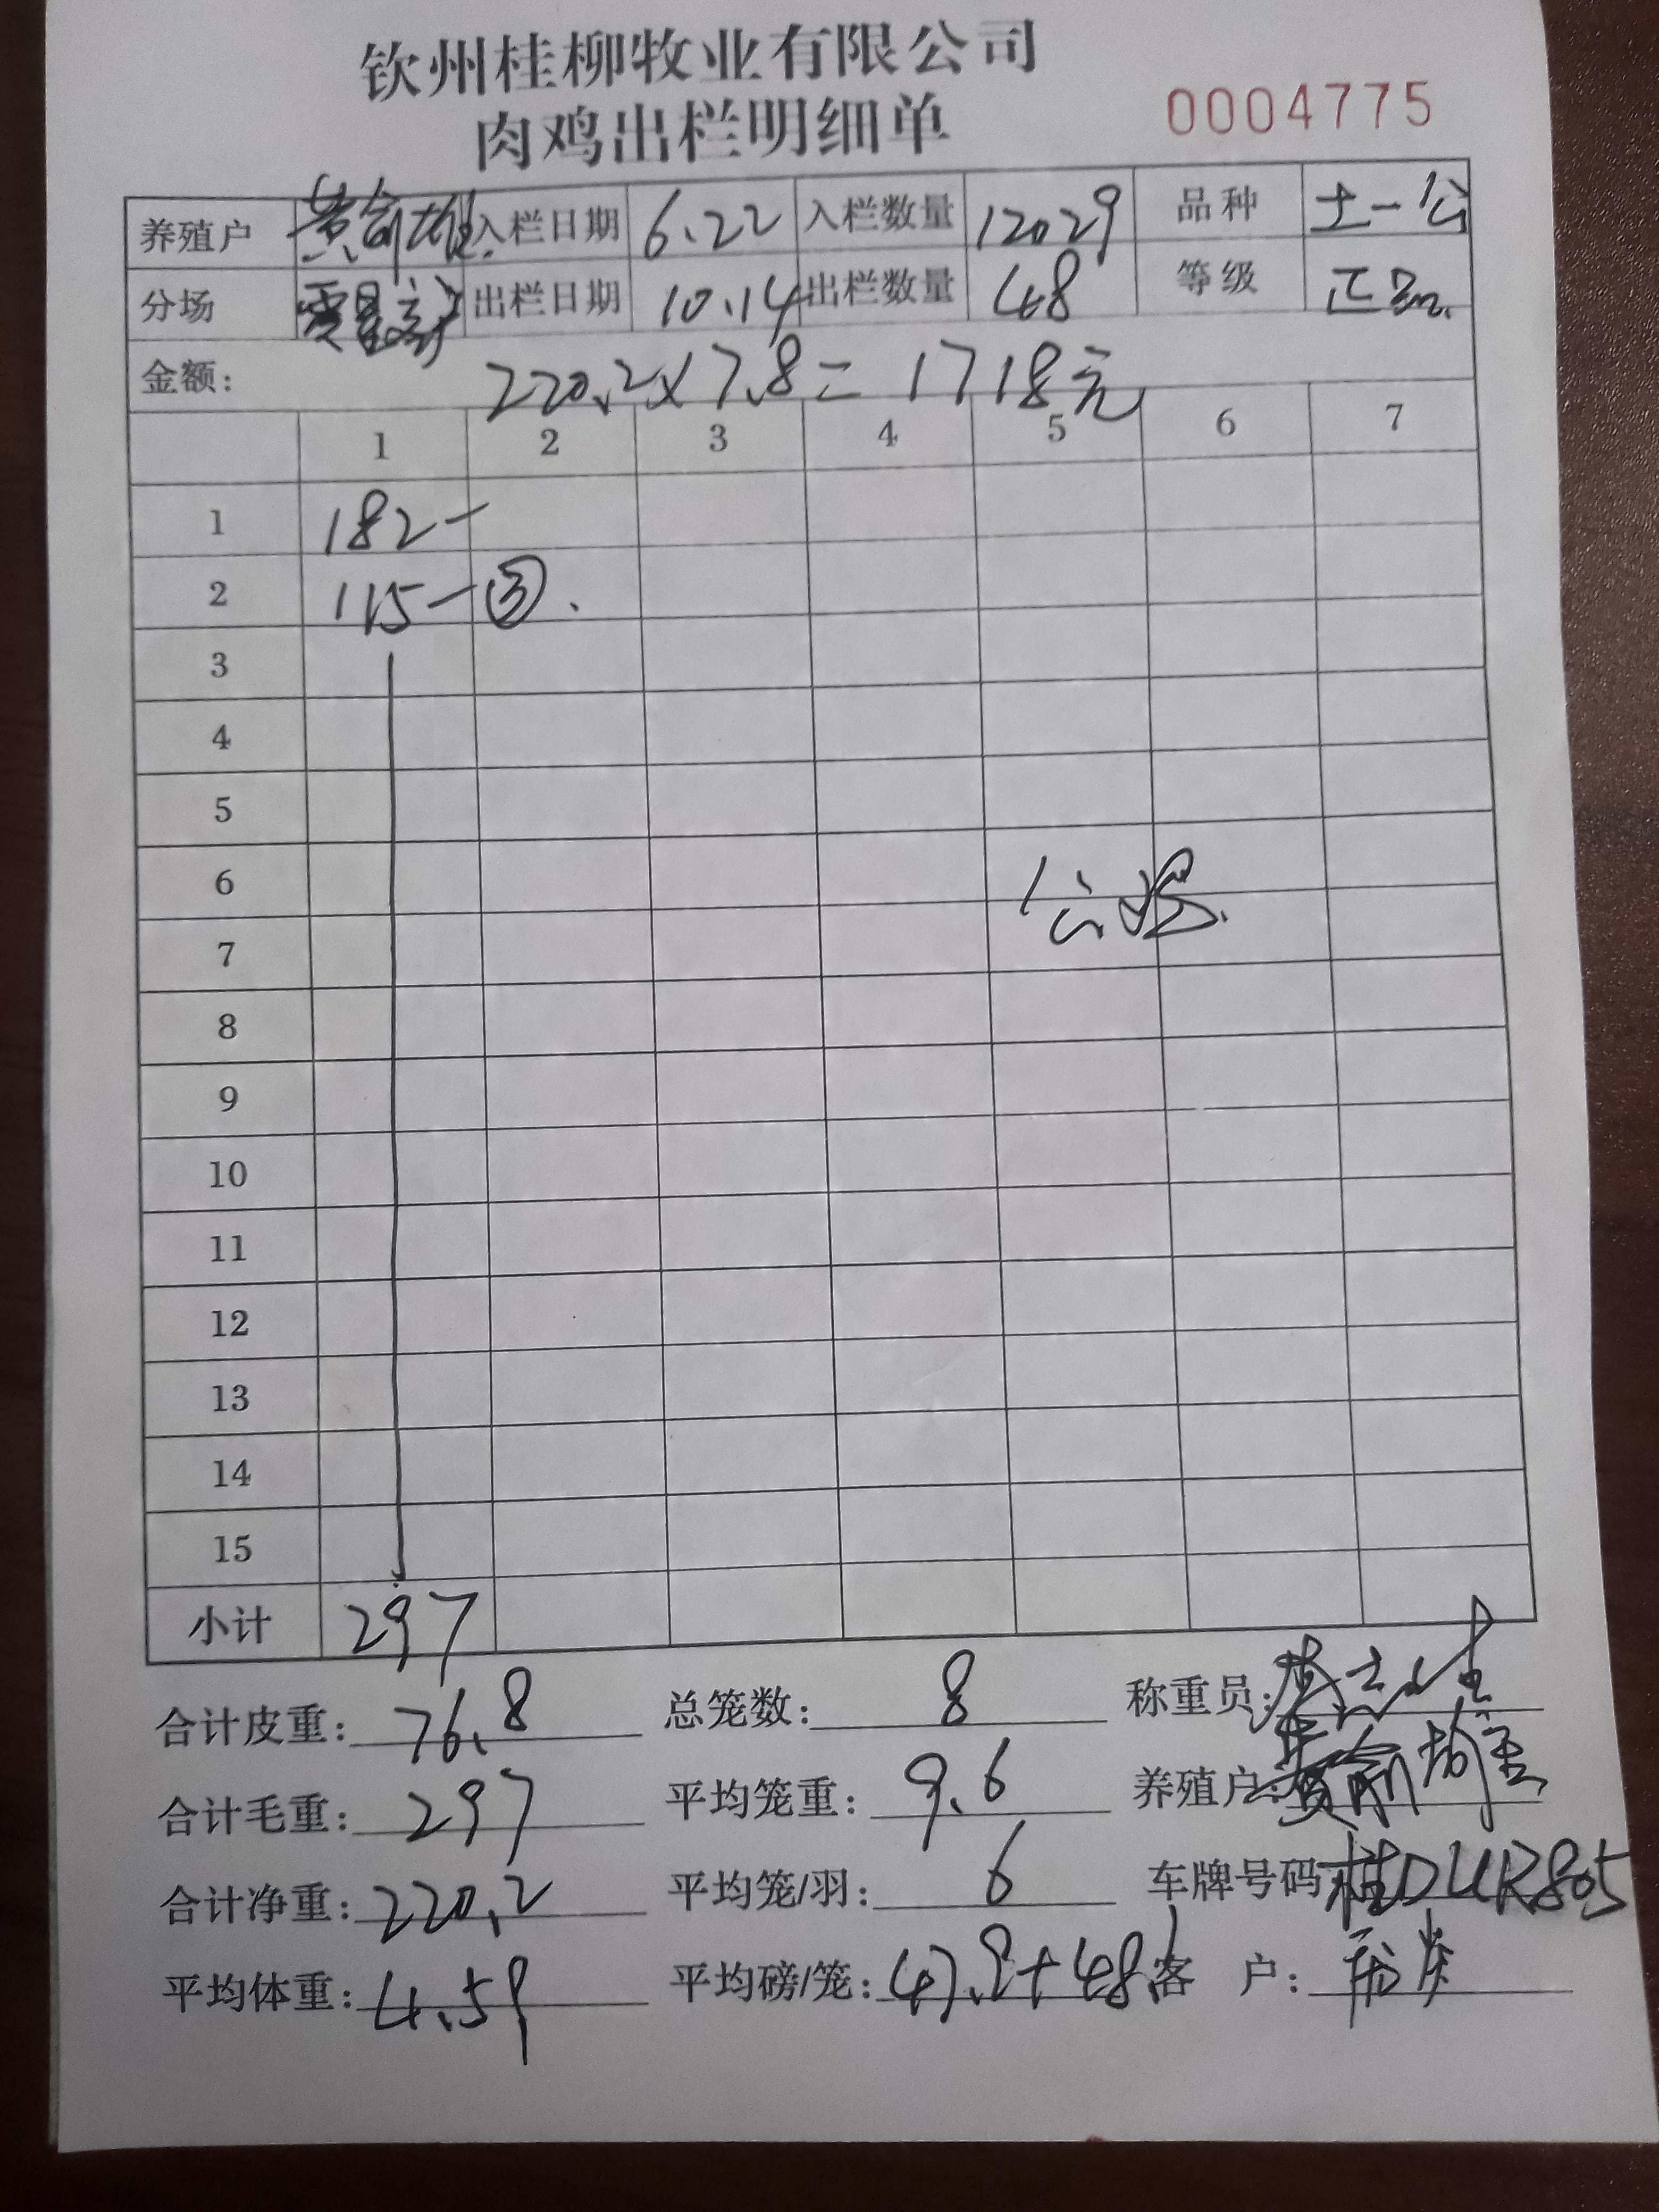 钦州桂柳牧业有限公司
肉鸡出栏明细单 0004775
养殖户 入栏日期 6.22 入栏数量 12029 品种 土一公
分场 出栏日期 10.14 出栏数量 48 等级 正品
金额: 220.2×7.8=1718元
1 2 3 4 5 6 7
1 182-
2 115-③.
3
4
5
6
公鸡
7
8
9
10
11
12
13
14
15
小计 297
合计皮重: 76.8 总笼数: 8 称重员:
合计毛重: 297 平均笼重: 9.6 养殖户:
合计净重: 220.2 平均笼/羽: 6 车牌号码 桂DUR805
平均体重: 4.59 平均磅/笼: 客 户: